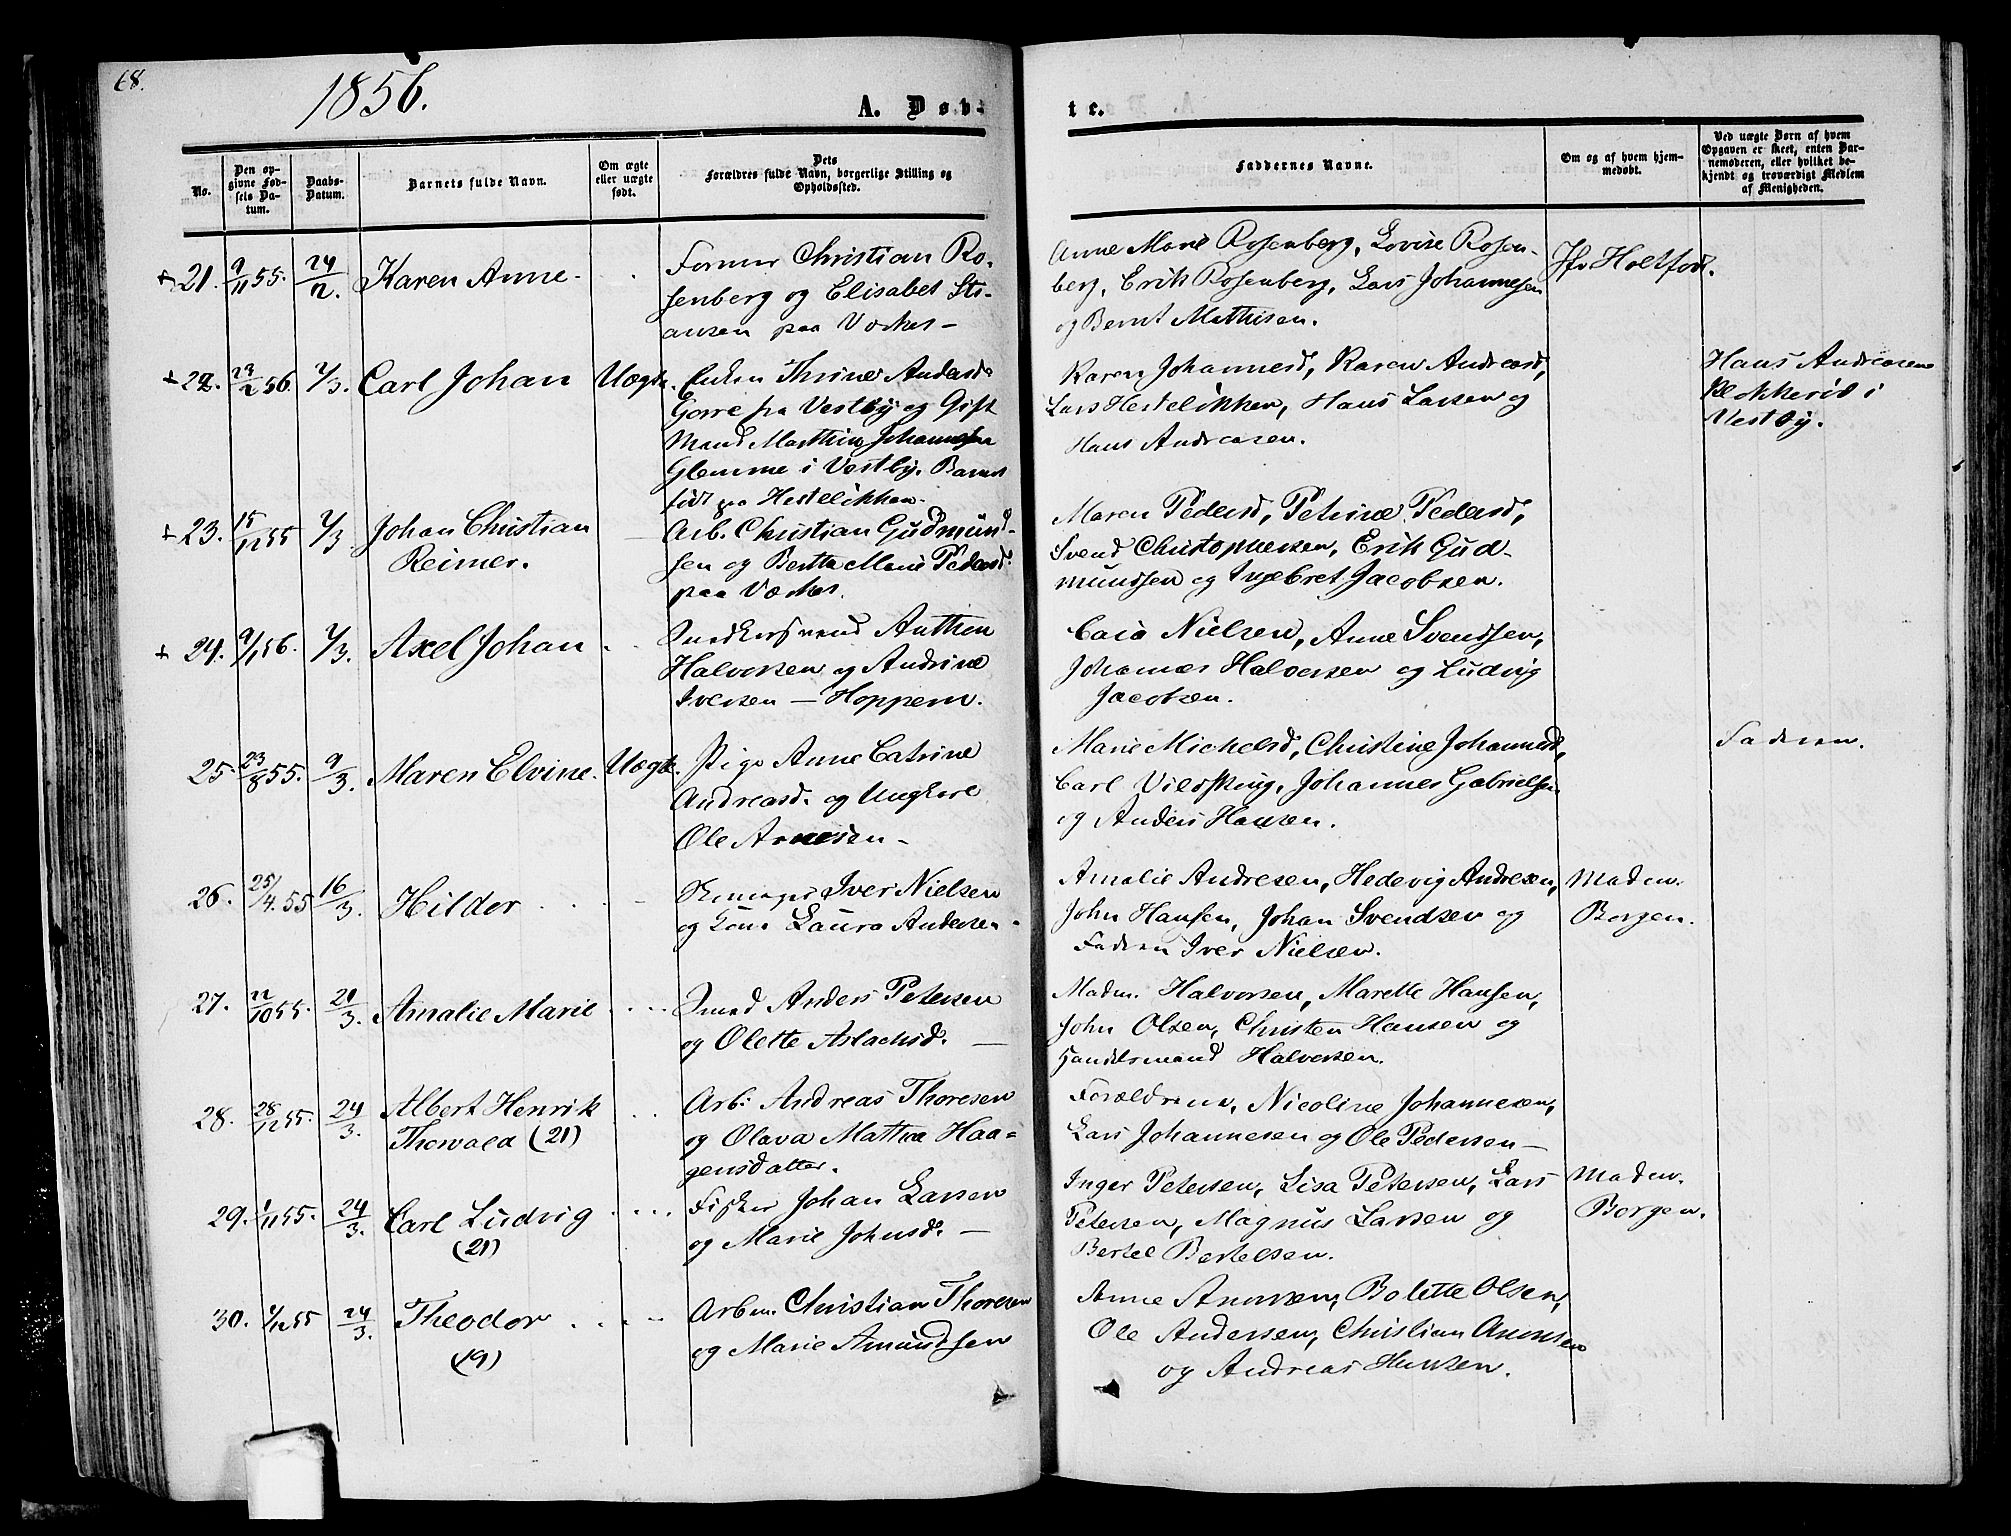 68.
1856.
A. Døb-
te.
No.
Den op-
givne Fød-
sels Da-
tum.
Daabs-
Datum.
Barnets fulde Navn.
Om ægte
eller uægte
født.
Dets
Forældres fulde Navn, borgerlige Stilling og
Opholdssted.
Faddernes Navne.
Om og af hvem hjem-
medøbt.
Ved uægte Børn af hvem
Opgaven er skeet, enten Bar-
nemoderen, eller hvilket be-
kjendt og troværdigt Medlem
af Menigheden.
21. 9/11 55. 24/2. Karen Anne
Christian Ro-
senberg og Elisabet
paa
Anne Marie Rosenberg, Lovise Rosen-
berg, Erik Rosenberg, Lars Johannesen
og Bernt Mathisen.
22. 23/2 56. 2/3. Carl Johan Uægte.
Enken Thrine Andersd.
fra Vestby og Gift
Mand Matthias Johannesen
Glemme i Vestby. Barnet
født paa Hestelikken.
Karen Johannesd, Karen Andreasd,
Lars Hestelikken, Hans Larsen og
Hans Andreasen.
Hans Andreasen
Klokkeriis i
Vestby.
23. 15/12 55 2/3 Johan Christian
Reimer.
Arb. Christian Gudmund-
sen og Berthe Marie Pedersd.
paa
Maren Pedersd, Petrine Pedersd,
Svend Christophersen, Erik Gud-
mundsen og Ingebret Jacobsen.
24. 9/1 56. 2/3. Axel Johan
Snedkersvend Anthon
Halvorsen og Andrine
Iversen — Hoppern.
Nielsen, Anne Svendsen,
Johannes Halvorsen og Ludvig
Jacobsen.
25. 23/8 55. 9/3. Maren Elvine. Uægte.
Pige Anne Catrine
Andreasd. og Ungkarl
Ole Arnesen -
Marie Michelsd, Christine Johannesd,
Carl Vildsking, Johannes Gabrielsen
og Anders Hansen.
Fadren.
26. 25/4. 55 16/3. Hildor
Iver Nielsen
og Kone Laura Andersen.
Amalie Andresen, Hedevig Andresen,
John Hansen, Johan Svendsen og
Fadren Iver Nielsen.
Madm.
Borgen.
27. 22/10 55. 21/3. Amalie Marie
Smed Anders Petersen
og Olette Aslachsd. —
Madm. Halvorsen, Marette Hansen,
John Olsen, Christen Hansen og
Handelsmand Halvorsen.
28. 28/12 55. 24/3. Albert Henrik
Thorvald (21)
Arb: Andreas Thoresen
og Olava Mathea Haa-
gensdatter.
Forældrene, Nicoline Johannesen,
Lars Johannesen og Ole Pedersen —
29. 1/11 55. 24/3. Carl Ludvig
(21)
Fisker Johan Larsen
og Marie Johnsd. —
Inger Petersen, Lisa Petersen, Lars
Petersen, Magnus Larsen og
Bertel Bertelsen.
Madm.
Borgen.
30. 9/12 55 24/3. Theodor
(19)
Arbm. Christian Thoresen
og Marie Amundsen
Anne Bolette Olsen,
Ole Andersen, Christian
og Andreas Hansen.